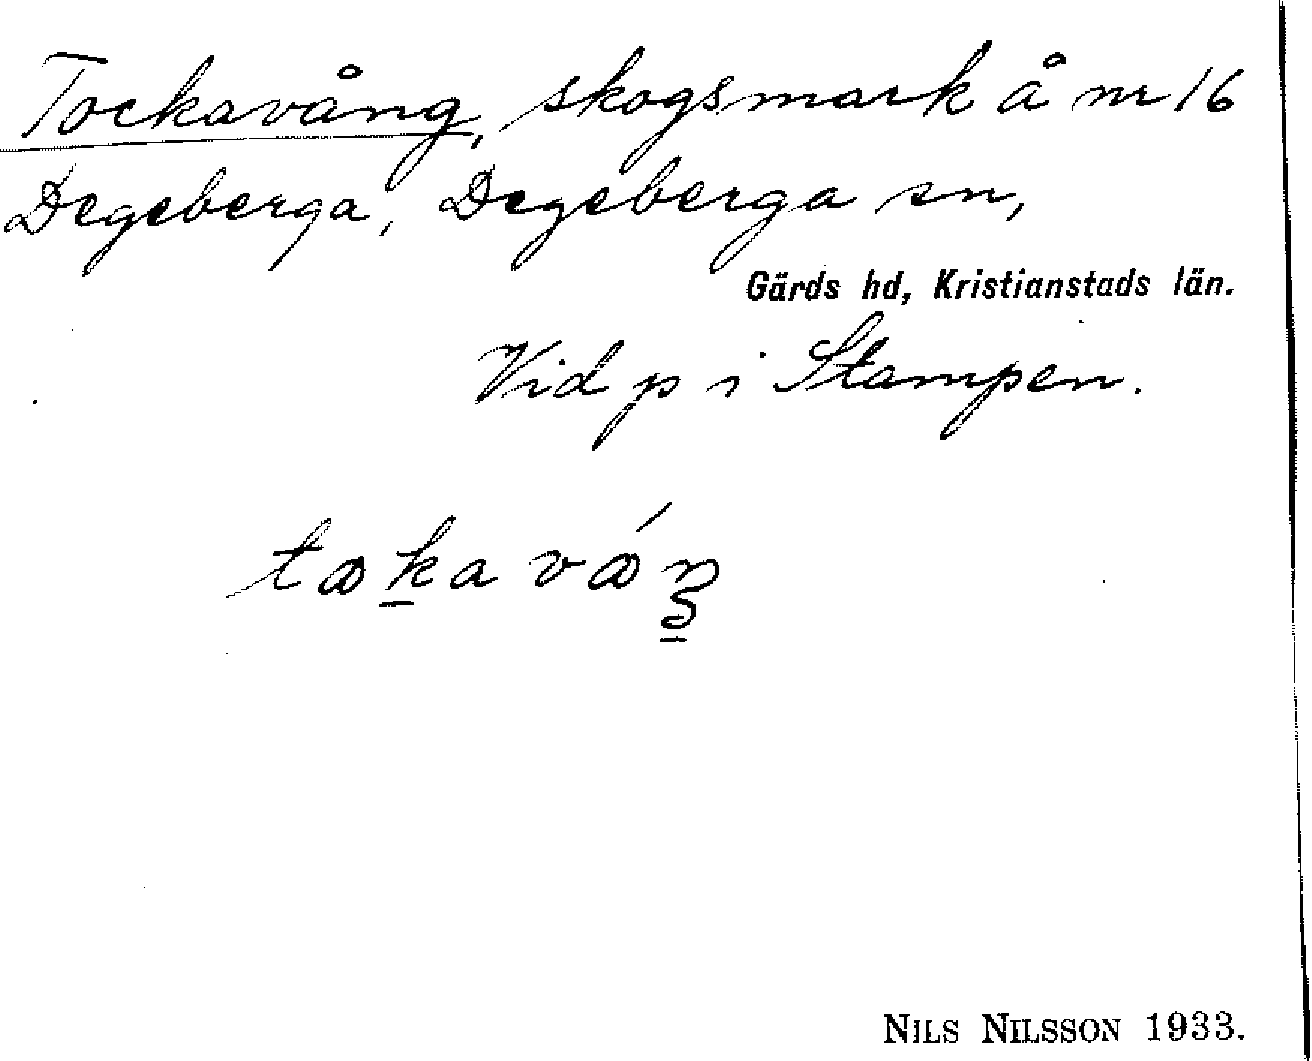 Tockavång, skogsmark å nr 16
Degeberga, Degeberga sn,
Gärds hd, Kristianstads län.
Vid p i Stampen.
NILS NILSSON 1933.